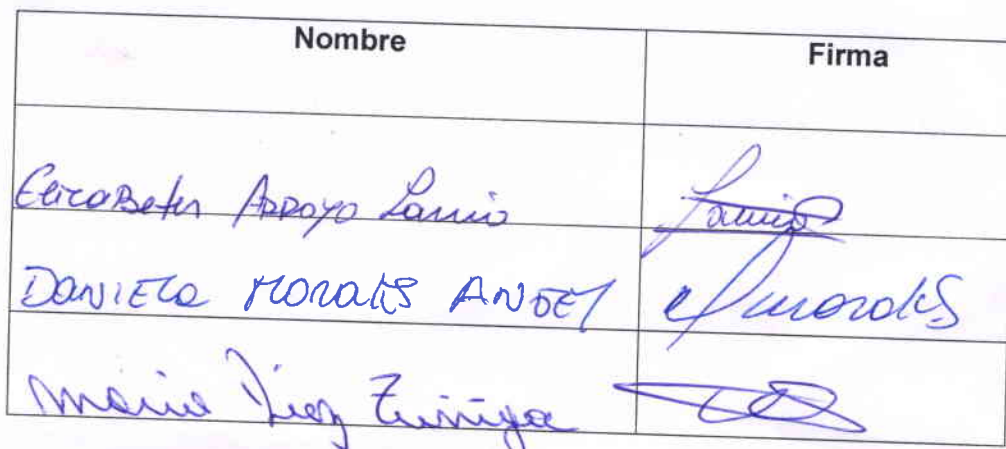 Nombre Firma
Elizabeth Arroyo Larrio
DANIELA MORALES ANGEL Dmorales
Maria Diaz Zuñiga